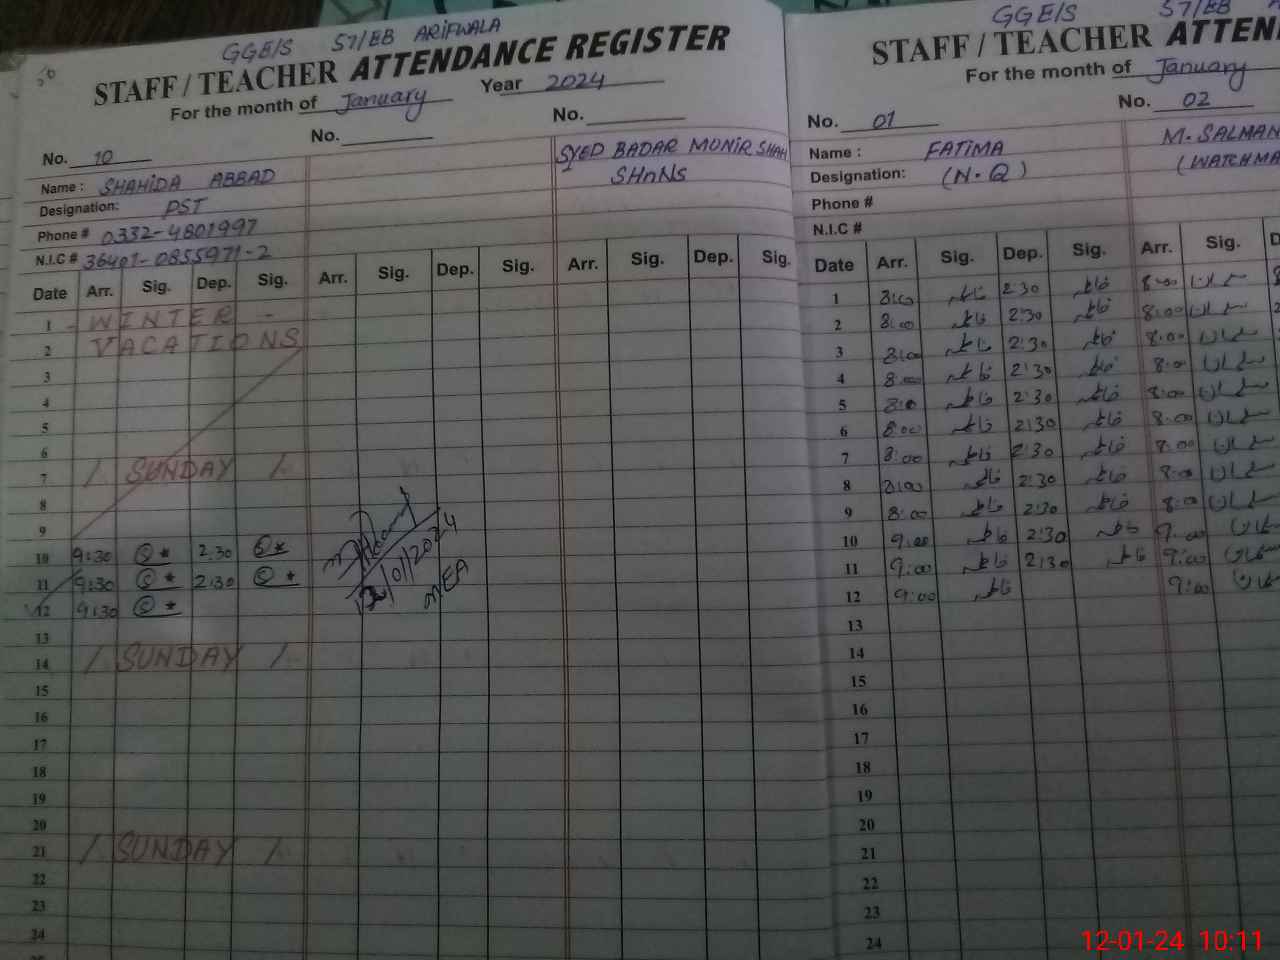 GGE/S 57/EB ARIFWALA
STAFF / TEACHER ATTENDANCE REGISTER
For the month of January Year 2024
No. 10 No. No.
Name : SHAHIDA ABBAD SYED BADAR MUNIR SHAH
Designation: PST SHnNS
Phone # 0332-4801997
N.I.C # 36401-0855971-2
Date Arr. Sig. Dep. Sig. Arr. Sig. Dep. Sig. Arr. Sig. Dep. Sig.
1 - WINTER -
2 VACATIONS
3
4
5
6
7 / SUNDAY /
8
9
10 9:30 2:30
11 9:30 2:30
12 9:30
12/01/2024
MEA
13
14 / SUNDAY /
15
16
17
18
19
20
21 / SUNDAY /
22
23
24
GGE/S 57/EB
STAFF / TEACHER ATTEN
For the month of January
No. 01 No. 02
Name : FATIMA M. SALMAN
Designation: (N.Q) (WATCHMA
Phone #
N.I.C #
Date Arr. Sig. Dep. Sig. Arr. Sig. D
1 8:00 فاطمہ 2:30 فاطمہ 8:00 سلمان
2 8:00 فاطمہ 2:30 فاطمہ 8:00 سلمان
3 8:00 فاطمہ 2:30 فاطمہ 8:00 سلمان
4 8:00 فاطمہ 2:30 فاطمہ 8:00 سلمان
5 8:00 فاطمہ 2:30 فاطمہ 8:00 سلمان
6 8:00 فاطمہ 2:30 فاطمہ 8:00 سلمان
7 8:00 فاطمہ 2:30 فاطمہ 8:00 سلمان
8 8:00 فاطمہ 2:30 فاطمہ 8:00 سلمان
9 8:00 فاطمہ 2:30 فاطمہ 8:00 سلمان
10 9:00 فاطمہ 2:30 فاطمہ 9:00 سلمان
11 9:00 فاطمہ 2:30 فاطمہ 9:00 سلمان
12 9:00 فاطمہ 9:00 سلمان
13
14
15
16
17
18
19
20
21
22
23
24
12-01-24 10:11